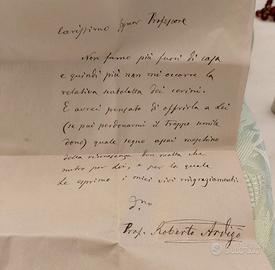 Carissimo Signor Professore
Non fumo più fuori di casa
e quindi più non mi occorre la
relativa scatoletta dei cerini.
E avrei pensato di offrirla a Lei
(se può perdonarmi il troppo umile
dono) quale segno assai meschino
della riconoscenza ben molta che
nutro per Lei, e per la quale
Le esprimo i miei vivi ringraziamenti.
Suo
Prof. Roberto Ardigò
subito.it